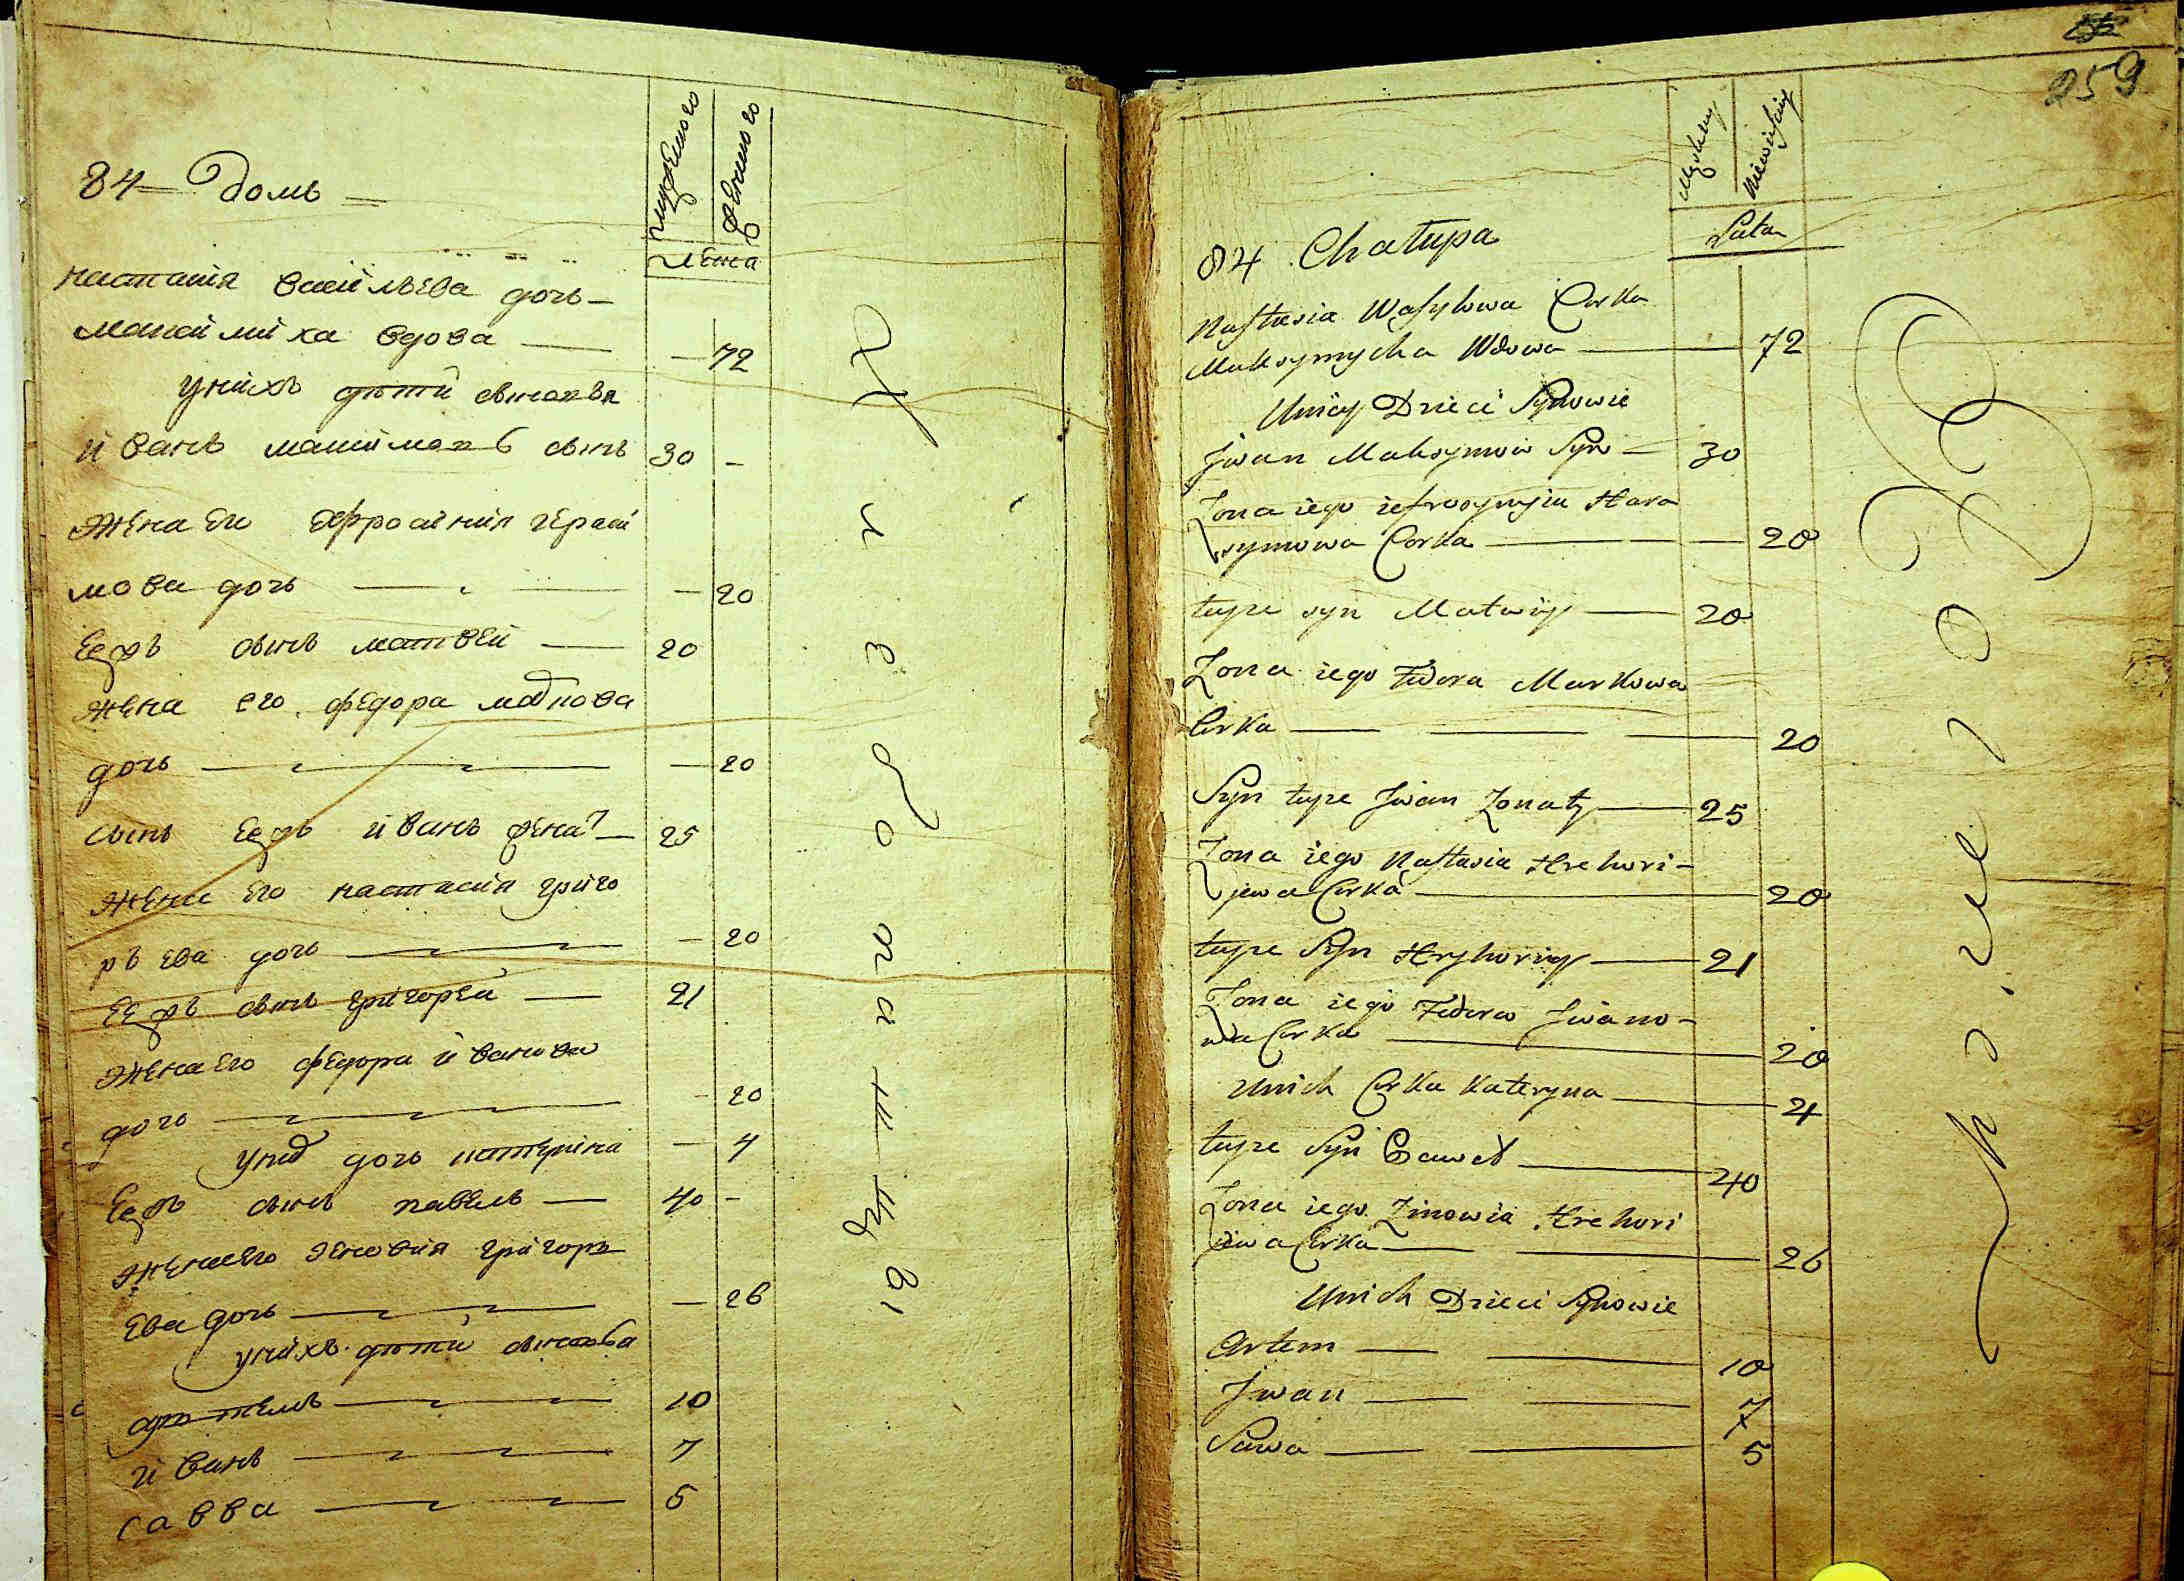 мужеского
женского
лета
84 домъ
настасия васильева дочь
максимиха вдова 72
у них дети сыновья
иванъ максимовъ сынъ 30
жена его ефросиния гераси
мова дочь 20
ее же сынъ матвей 20
жена его федора маркова
дочь 20
сынъ ее же иванъ женат 25
жена его настасия григо
рьева дочь 20
ее же сынъ григорей 21
жена его федора иванова
дочь 20
у них дочь катерина 4
ее же сынъ павелъ 40
жена его зеновия григорь
ева дочь 26
у нихъ дети сыновья
артемъ 10
иванъ 7
савва 5
259
Męskiey
Niewieściey
Lata
84 Chałupa
Nastasia Wasylowa Corka
Maksymycha Wdowa 72
U niey Dzieci Synowie
Jwan Maksymow Syn 30
Zona iego iefrosynyia Hara
symowa Corka 20
teyze syn Matwiy 20
Zona iego Fedora Markowa
Corka 20
Syn teyze Jwan Zonaty 25
Zona iego Nastasia Hrehori-
jewa Corka 20
teyze Syn Hryhoriy 21
Zona iego Fedora Jwano-
wa Corka 20
U nich Corka Kateryna 4
teyze Syn Paweł 40
Zona iego Zinowia Hrehori
jewa Corka 26
U nich Dzieci Synowie
Artem 10
Jwan 7
Sawa 5